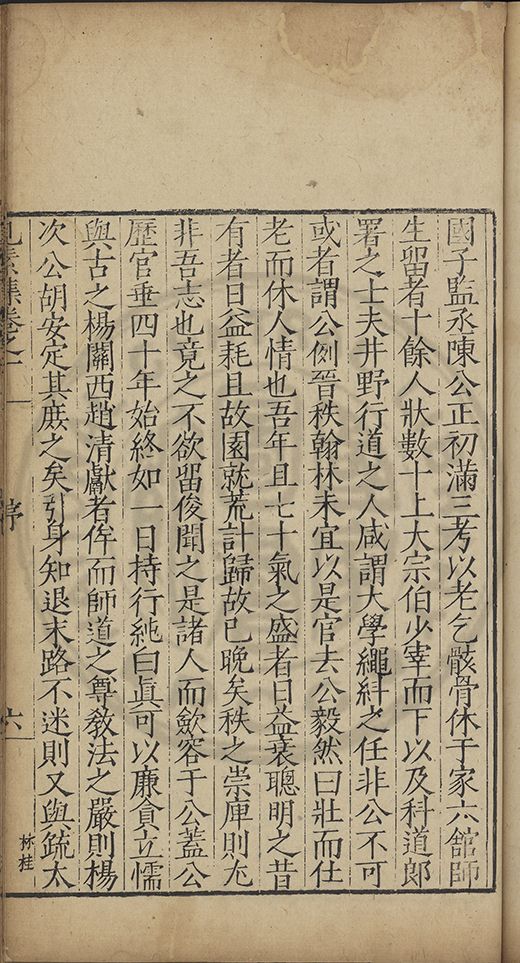 國子監丞陳公正初滿三考以老乞骸骨休于家六館師
生留者十餘人狀數十上大宗伯少宰而下以及科道郎
署之士夫井野行道之人咸謂大學繩糾之任非公不可
或者謂公例晉秩翰林未宜以是官去公毅然曰壯而仕
老而休人情也吾年且七十氣之盛者日益衰聰明之昔
有者日益耗且故園就荒計歸故已晚矣秩之崇庳則尤
非吾志也竟之不欲留俊聞之是諸人而歛容于公蓋公
歷官垂四十年始終如一日持行純白眞可以廉貪立懦
與古之楊關西趙清獻者侔而師道之尊敎法之嚴則楊
次公胡安定其庶之矣引身知退末路不迷則又與疏太
集卷之一
序
六
林桂